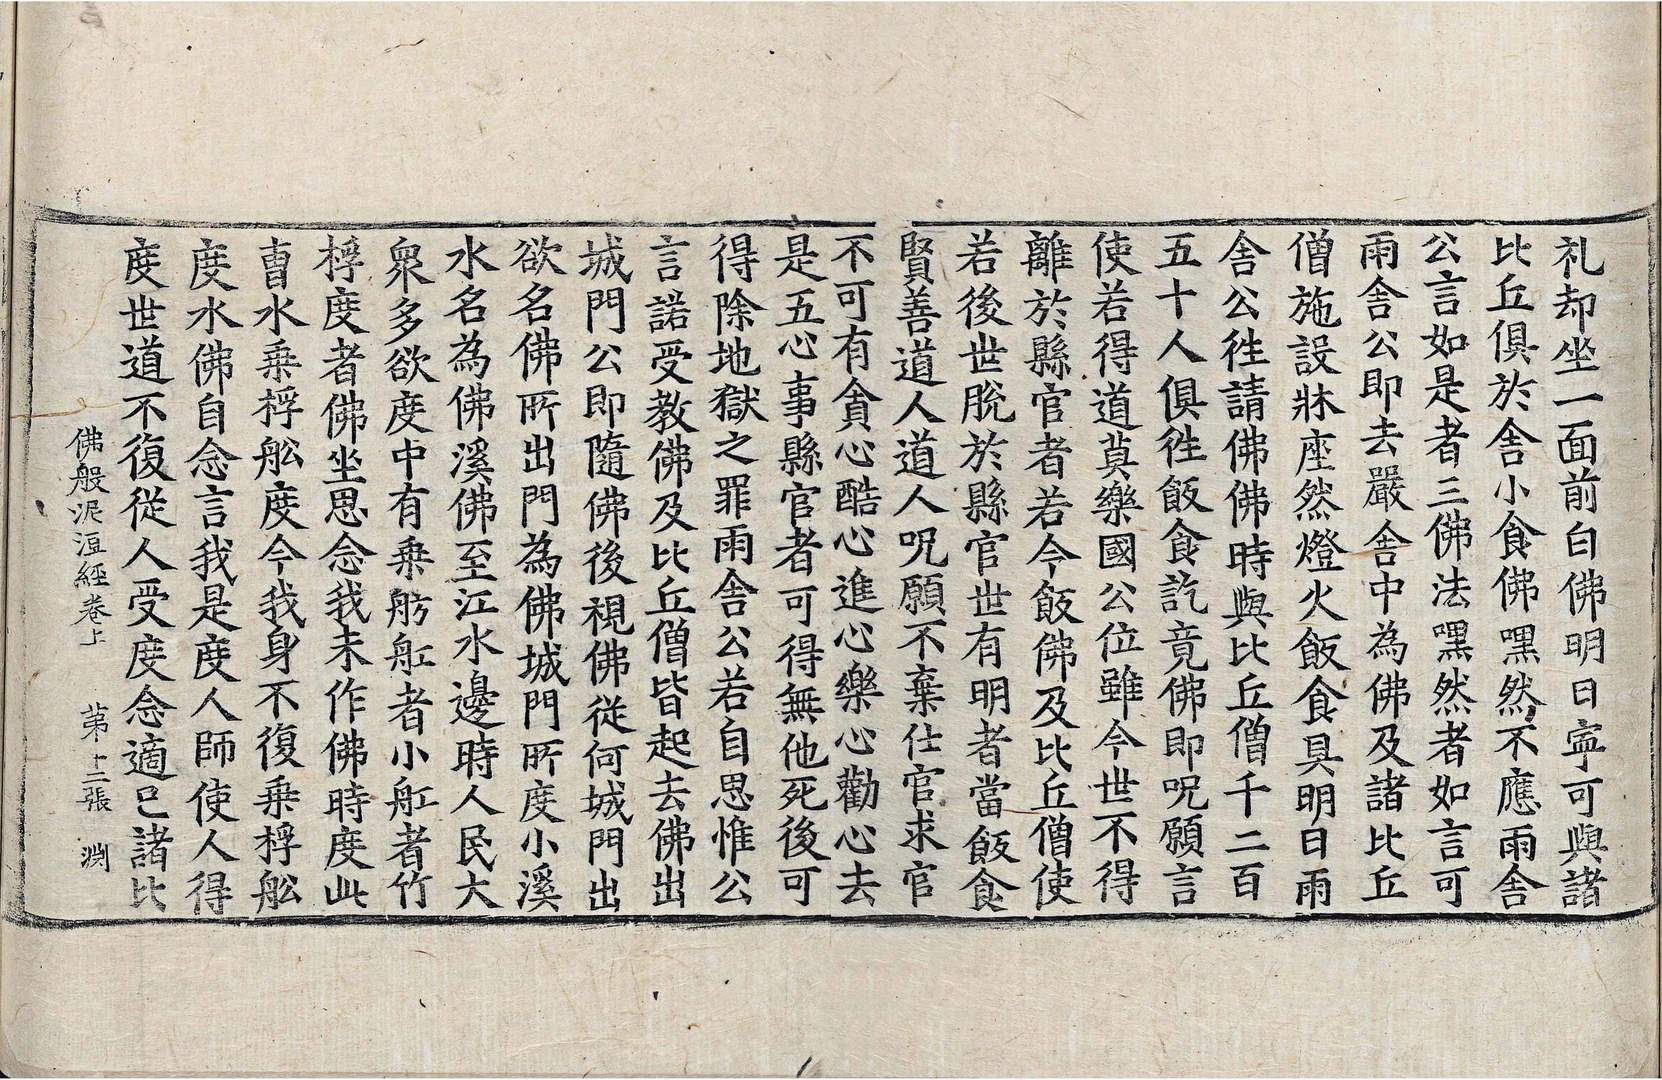 礼却坐一面前白佛明日寧可與諸
比丘俱於舎小食佛嘿然不應雨舎
公言如是者三佛法嘿然者如言可
雨舎公即去嚴舎中為佛及諸比丘
僧施設牀座然燈火飯食具明日雨
舎公徃請佛佛時與比丘僧千二百
五十人俱徃飯食訖竟佛即呪願言
使若得道莫樂國公位雖今世不得
離於縣官者若今飯佛及比丘僧使
若後世脫於縣官世有明者當飯食
賢善道人道人呪願不棄仕官求官
不可有貪心酷心進心樂心勸心去
是五心事縣官者可得無他死後可
得除地獄之罪雨舎公若自思惟公
言諾受教佛及比丘僧皆起去佛出
城門公即隨佛後視佛從何城門出
欲名佛所出門為佛城門所度小溪
水名為佛溪佛至江水邊時人民大
衆多欲度中有乗舫舡者小舡者竹
桴度者佛坐思念我未作佛時度此
曺水乗桴舩度今我身不復乗桴舩
度水佛自念言我是度人師使人得
度世道不復從人受度念適已諸比
佛般泥洹經卷上　第十二張　淵